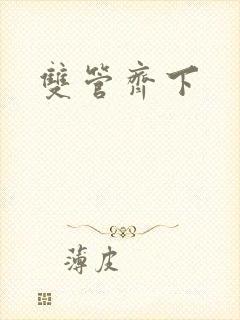 雙管齊下
薄皮